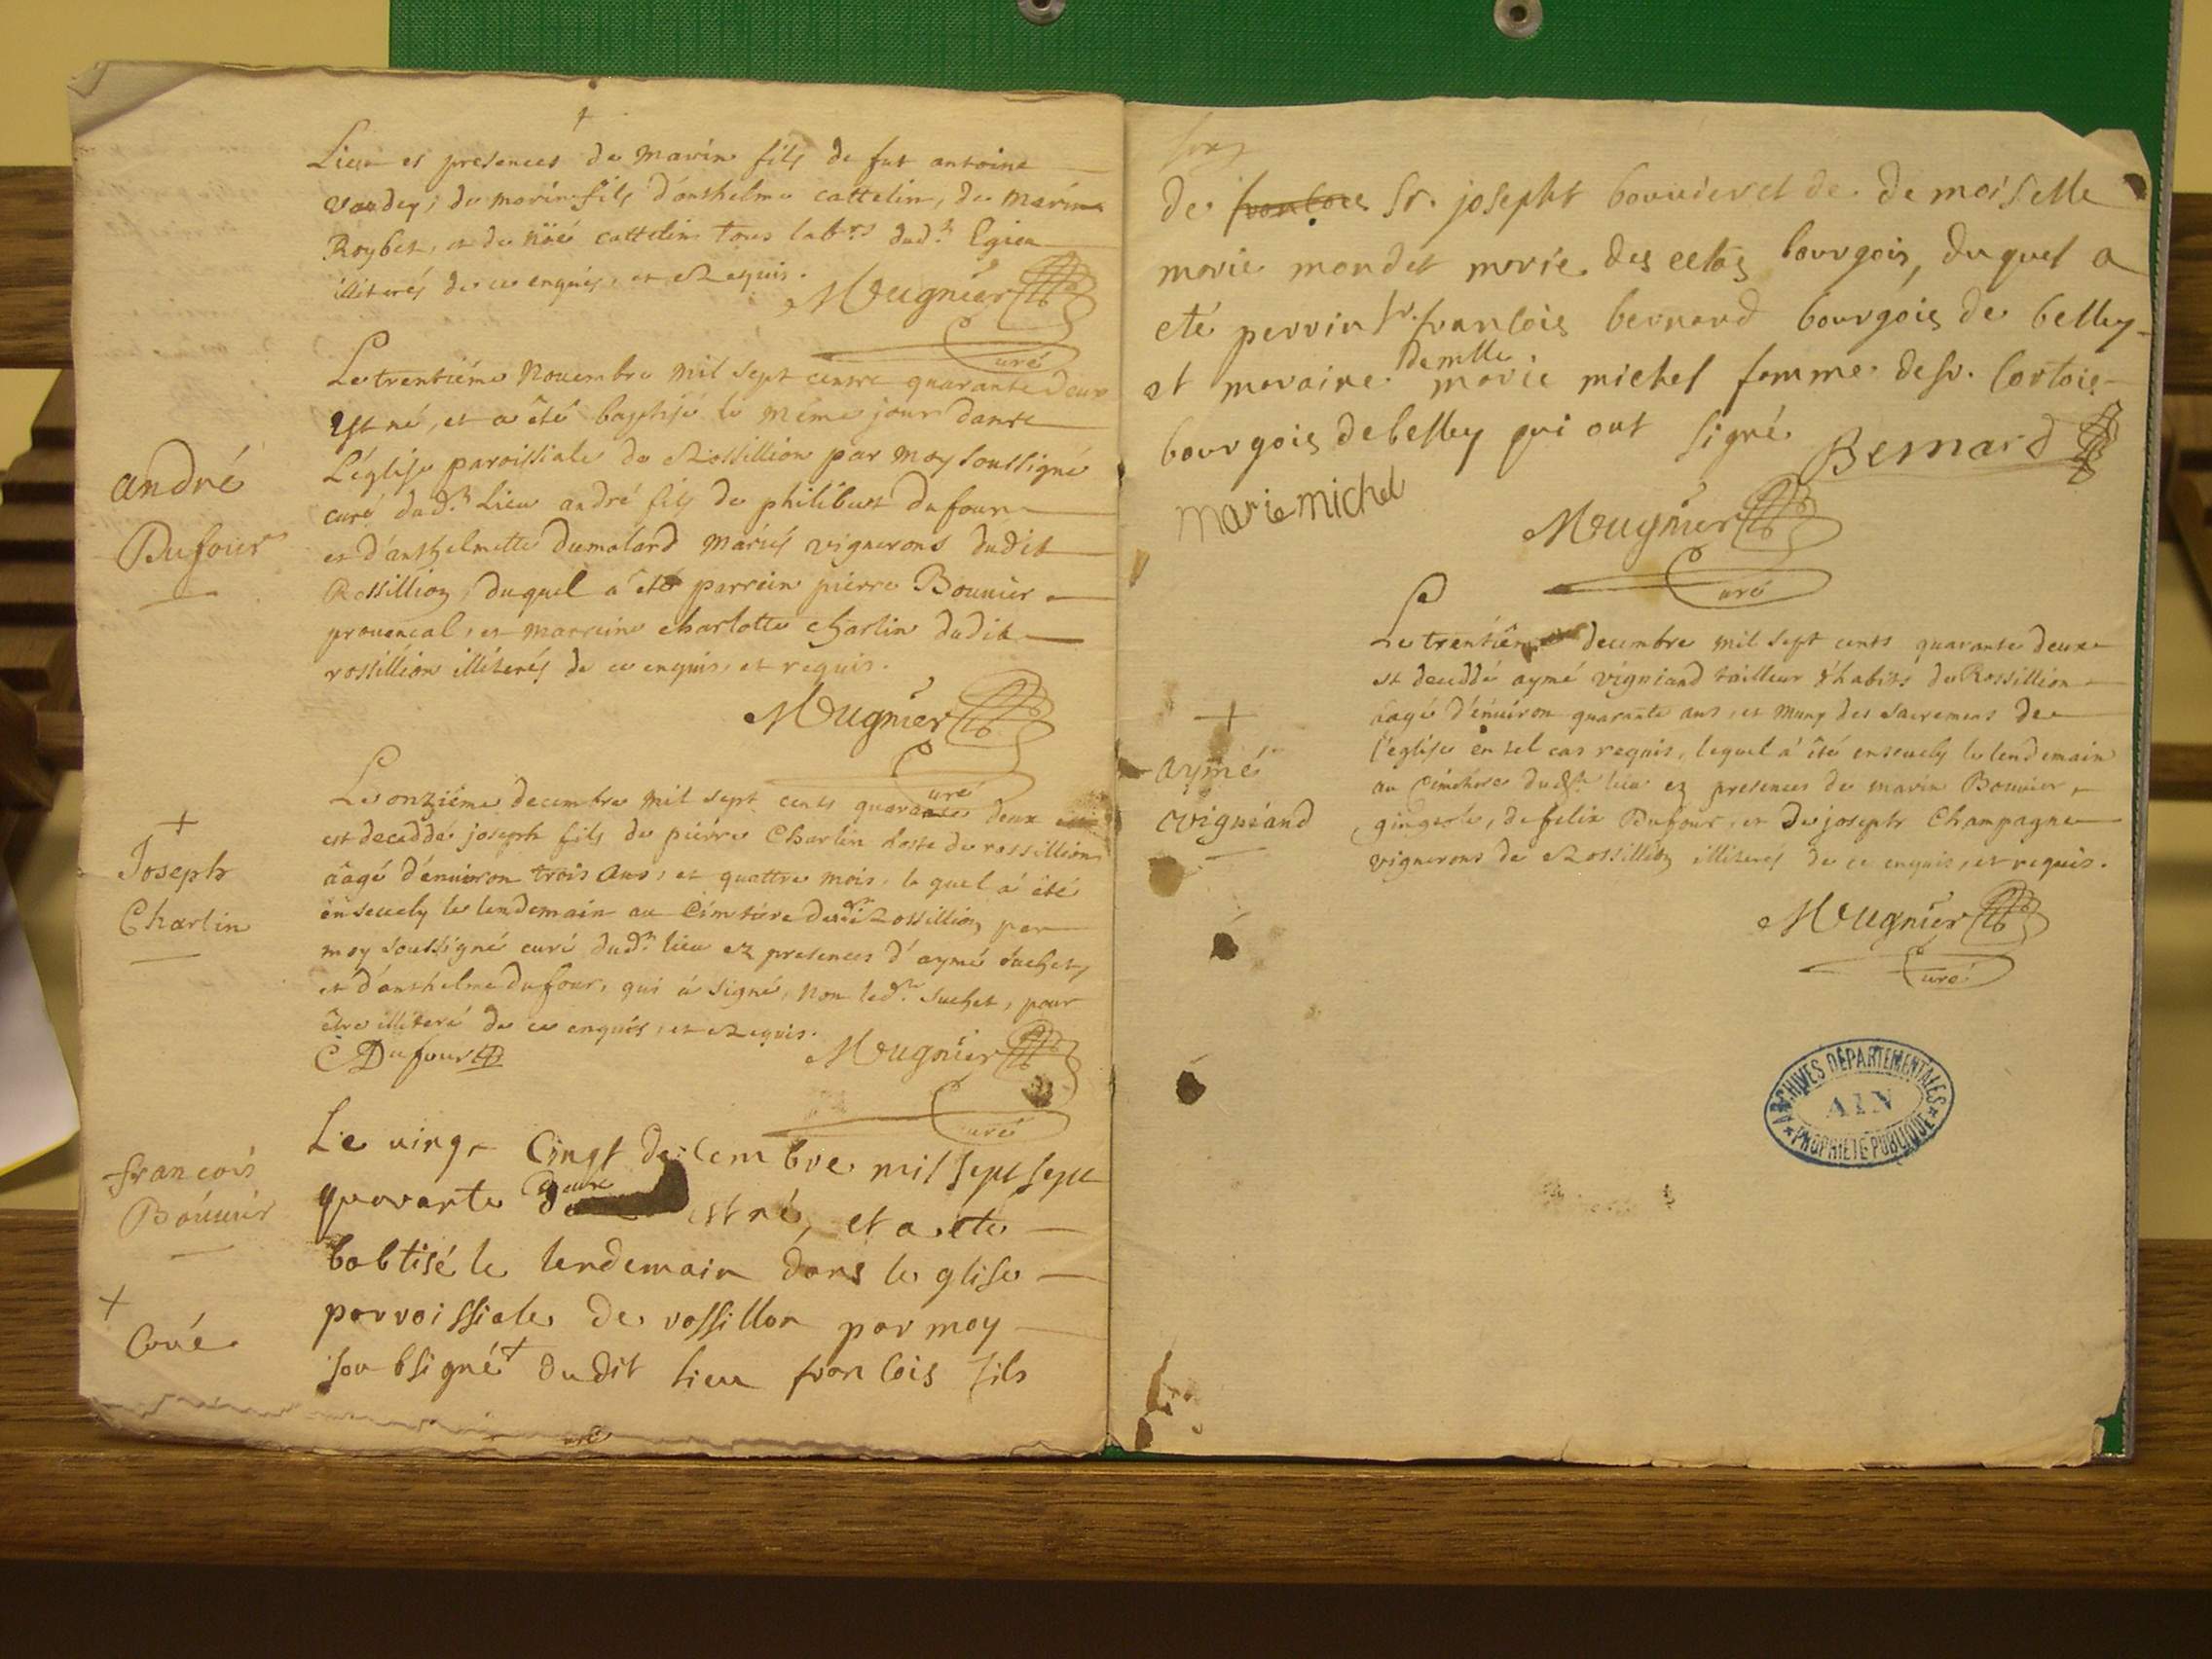 Lieu es presences de marin fils de fut antoine
vaudey, de marin fils d'anthelme cattelin, de marin
Roybet, et de nöé cattelin tous labrs dudt Egieu
illiterés de ce enquis, et Requis.
Mugnier
Curé
Le trentiéme Novembre mil sept cents quarante deux
Est né, et a été baptisé le même jour dans
L'église paroissiale de Rossillion par moy soussigné
curé dudt Lieu andré fils de philibert dufour
et d'anthelmette Dumolard mariés vignerons dudit
Rossillion, duquel a été parrein pierre Bouvier
provencal, et marreine charlotte charlin dudit
rossillion illiterés de ce enquis, et requis.
Mugnier
Curé
andré
Dufour
Le onziéme decembre mil sept cents quarante deux
est deceddé joseph fils de piérre Charlin hoste de rossillion
âagé d'énviron trois ans, et quattre mois, le quel a été
ensevely le lendemain au Cimetiére de Rossillion par
moy soussigné curé dudt lieu ez presences d'aymé suchet,
et d'anthelme Dufour, qui a signé, non ledt Suchet, pour
être illiteré de ce enquis, et Requis.
Dufour
Mugnier
Curé
+
Joseph
Charlin
Le vingt Cinqt decembre mil sept sept
quarante deux est né, et a eté
babtisé le lendemain dans leglise
parroissiale de rossillon par moy
soubsigné + dudit lieu francois fils
francois
Bouvier
+
Curé
de Sr. josepht bouvier et de demoiselle
marie mondet mariés des echos bourgois, duquel a
eté perrin Sr. francois bernard bourgois de belley
et maraine demlle marie michel femme de Sr. Cortois
bourgois de belley qui ont signé
Bernard
marie michel
Mugnier
Curé
Le trentiéme decembre mil sept cents quarante deux
est deceddé aymé vigniand tailleur d'habits de Rossillion
âagé d'énviron quarante ans, et muny des sacremens de
l'église en tel cas requis, lequel a été ensevely le lendemain
au Cimetiere dudt lieu ez presences de marin Bouvier,
gingeole, de felix Dufour, et de joseph Champagne
vignerons de Rossillion illiterés de ce enquis, et requis.
Mugnier
Curé
+
aymé
vigniand
ARCHIVES DÉPARTEMENTALES
AIN
PROPRIÉTÉ PUBLIQUE